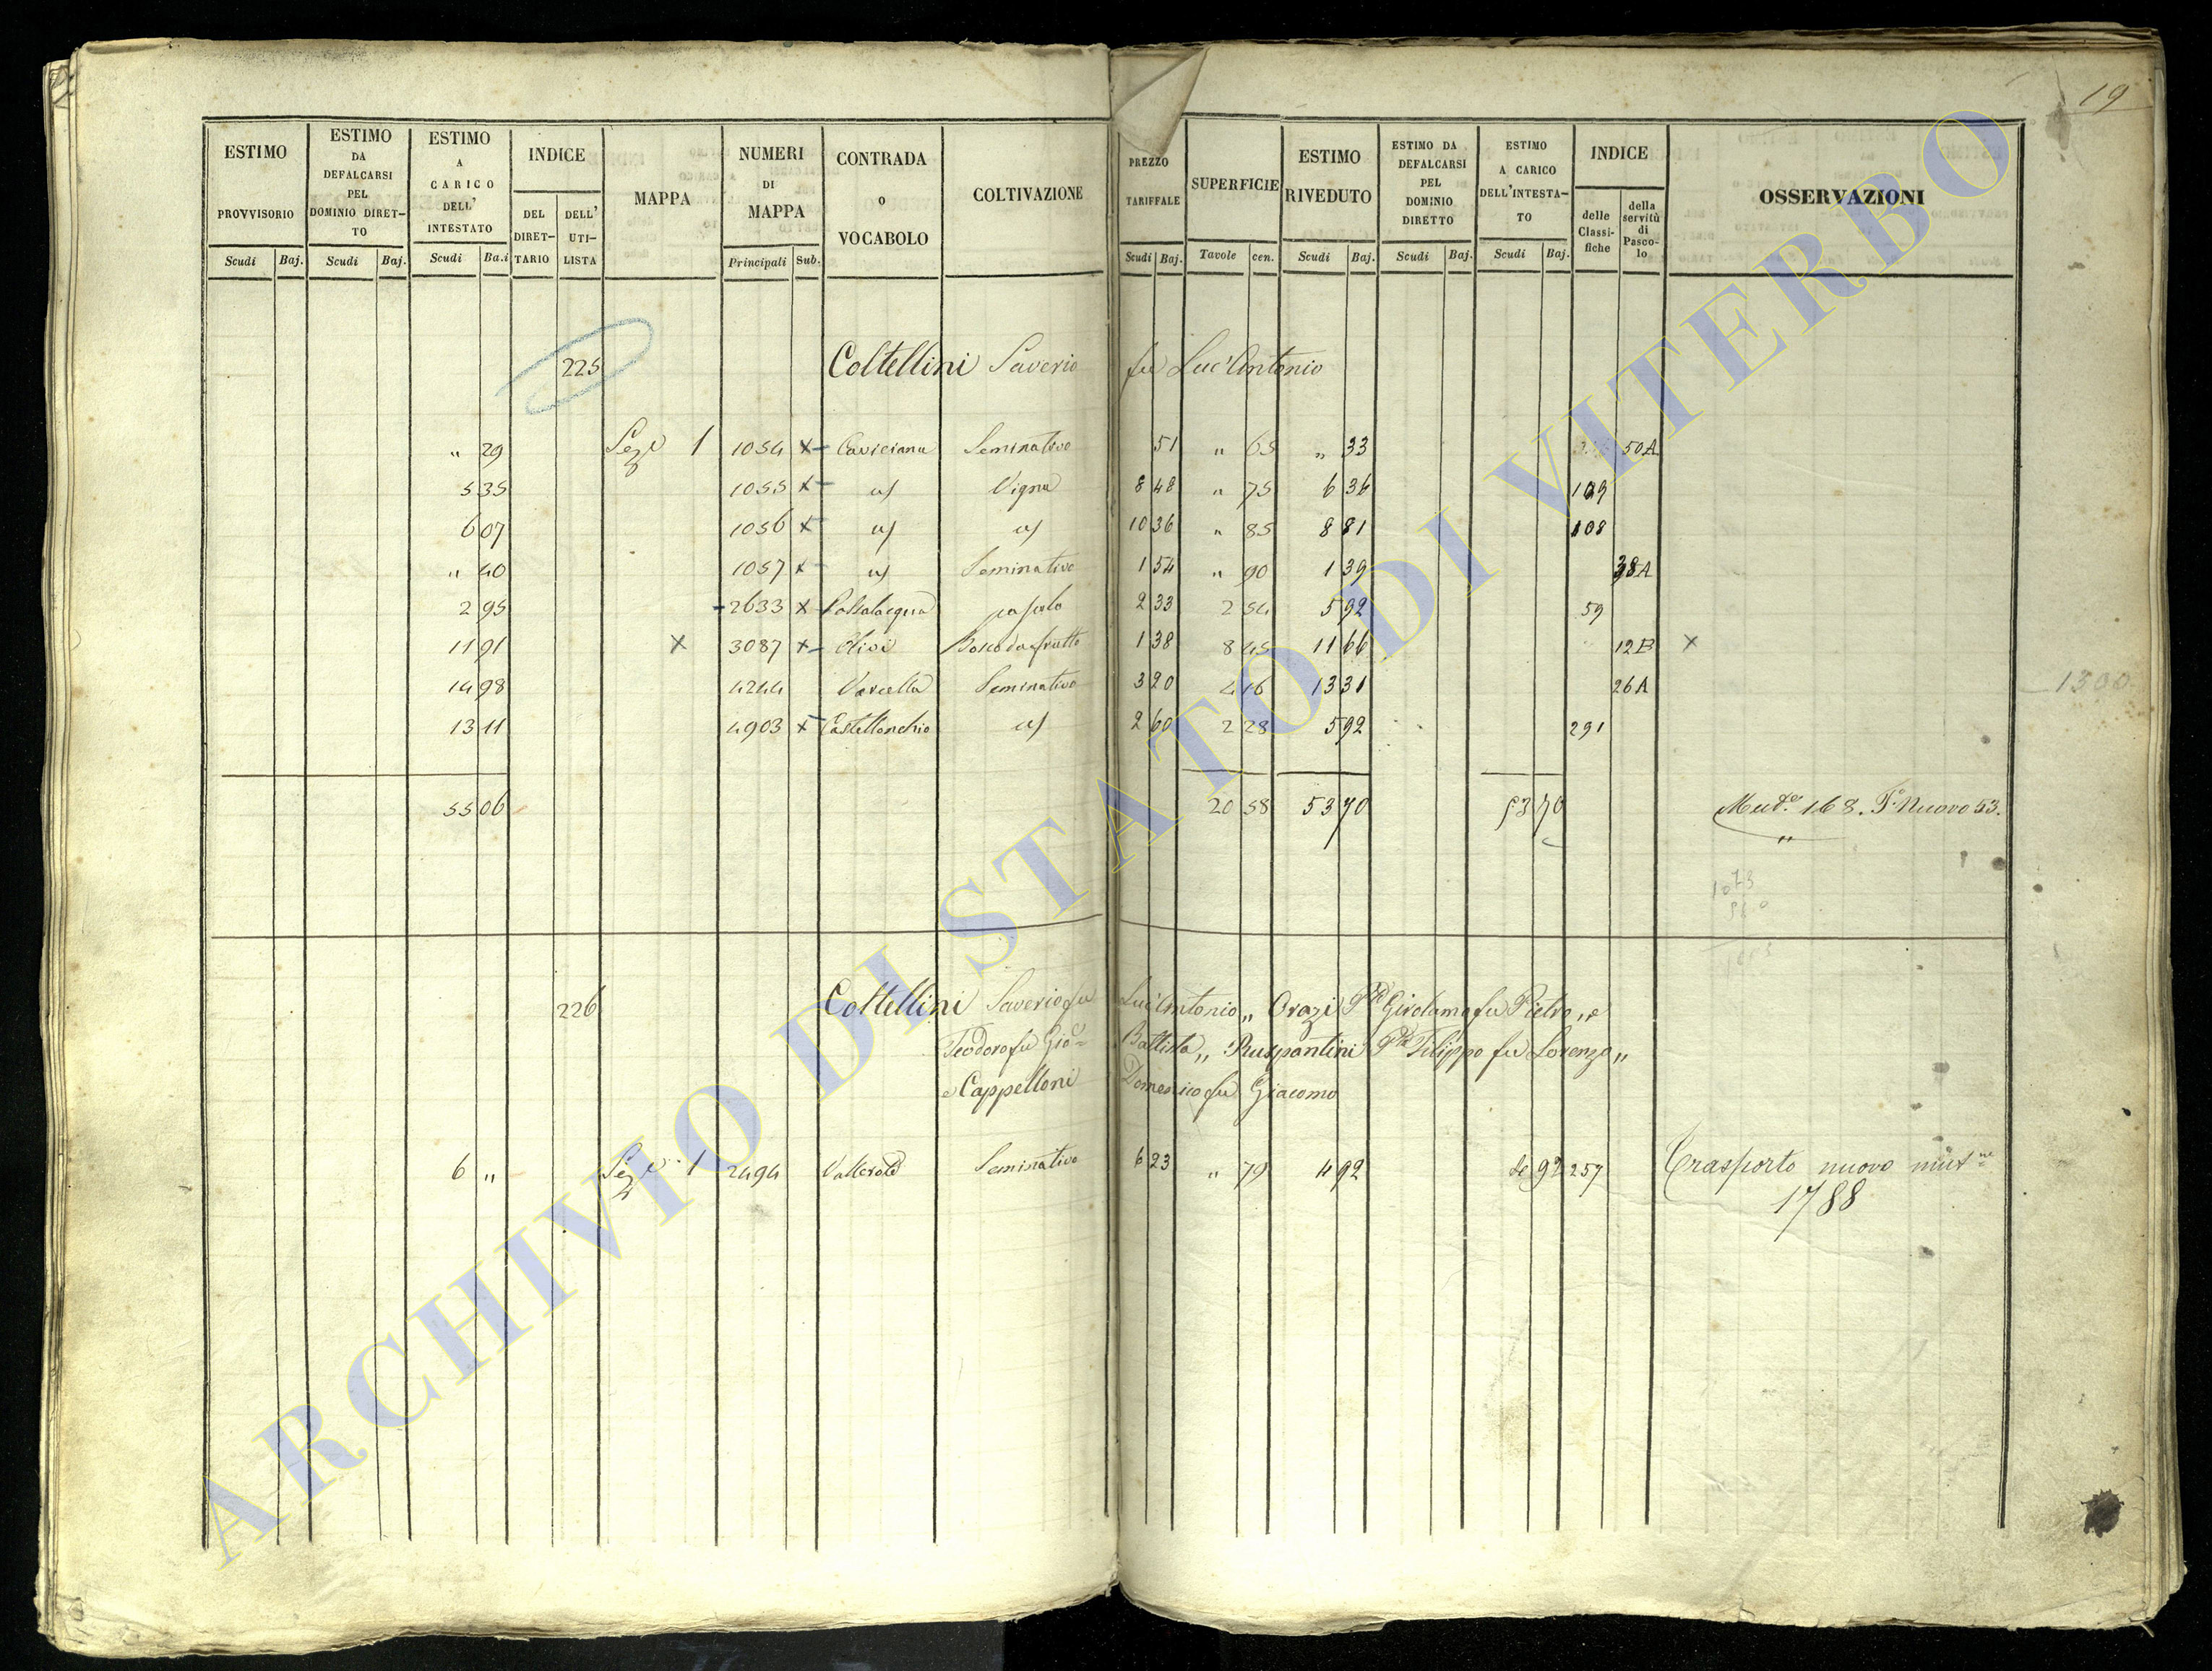 19
ESTIMO PROVVISORIO Scudi Baj.
ESTIMO DA DEFALCARSI PEL DOMINIO DIRETTO Scudi Baj.
ESTIMO A CARICO DELL' INTESTATO Scudi Ba.i
INDICE DEL DIRETTARIO DELL' UTILISTA
MAPPA
NUMERI DI MAPPA Principali Sub.
CONTRADA O VOCABOLO
COLTIVAZIONE
PREZZO TARIFFALE Scudi Baj.
SUPERFICIE Tavole cen.
ESTIMO RIVEDUTO Scudi Baj.
ESTIMO DA DEFALCARSI PEL DOMINIO DIRETTO Scudi Baj.
ESTIMO A CARICO DELL'INTESTATO Scudi Baj.
INDICE delle Classifiche della servitù di Pascolo
OSSERVAZIONI
225 Coltellini Saverio fu Luc'Antonio
" 29 Sez.e 1 1054 x Caviciana Seminativo 51 " 65 " 33 50A
5 35 1055 x a/ Vigna 8 48 " 75 6 36 109
6 07 1056 x a/ a/ 10 36 " 85 8 81 108
" 40 1057 x a/ Seminativo 1 54 " 90 1 39 38A
2 95 2633 x pascolo 2 33 2 54 5 92 59
11 91 x 3087 x Olivi Bosco da frutto 1 38 8 45 11 66 12B x
14 98 4244 Varcella Seminativo 3 20 4 16 13 31 26A 1300
13 11 4903 x Castellonchio a/ 2 60 2 28 5 92 291
55 06 20 58 53 70 53 70 Mut.e 168. P. Nuovo 53.
226 Coltellini Saverio fu Luc'Antonio " Orazi Girolamo fu Pietro, e
Teodoro fu Gio= Battista " Ruspantini Filippo fu Lorenzo "
e Cappelloni Domenico fu Giacomo
6 " Sez.e 1 2494 Vallerote Seminativo 6 23 " 79 4 92 4 92 257 Trasporto nuovo mut.ne
1788
ARCHIVIO DI STATO DI VITERBO